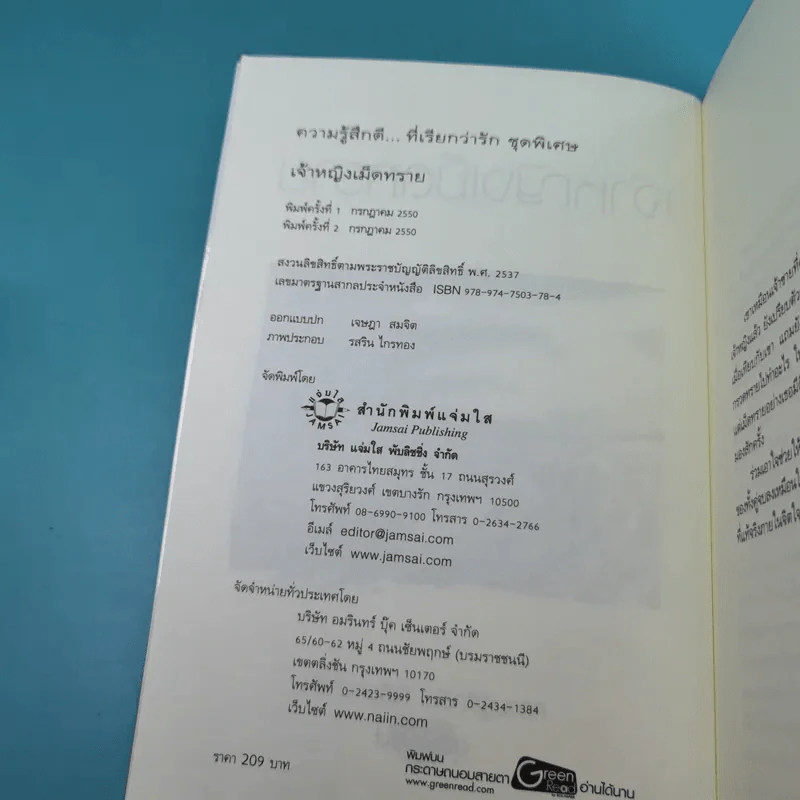 ความรู้สึกดี... ที่เรียกว่ารัก ชุดพิเศษ
เจ้าหญิงเม็ดทราย
พิมพ์ครั้งที่ 1 กรกฎาคม 2550
พิมพ์ครั้งที่ 2 กรกฎาคม 2550
สงวนลิขสิทธิ์ตามพระราชบัญญัติลิขสิทธิ์ พ.ศ. 2537
เลขมาตรฐานสากลประจำหนังสือ ISBN 978-974-7503-78-4
ออกแบบปก เจษฎา สมจิต
ภาพประกอบ รสริน ไกรทอง
จัดพิมพ์โดย
แจ่มใส
JAMSAI
สำนักพิมพ์แจ่มใส
Jamsai Publishing
บริษัท แจ่มใส พับลิชชิ่ง จำกัด
163 อาคารไทยสมุทร ชั้น 17 ถนนสุรวงศ์
แขวงสุริยวงศ์ เขตบางรัก กรุงเทพฯ 10500
โทรศัพท์ 08-6990-9100 โทรสาร 0-2634-2766
อีเมล์ editor@jamsai.com
เว็บไซต์ www.jamsai.com
จัดจำหน่ายทั่วประเทศโดย
บริษัท อมรินทร์ บุ๊ค เซ็นเตอร์ จำกัด
65/60-62 หมู่ 4 ถนนชัยพฤกษ์ (บรมราชชนนี)
เขตตลิ่งชัน กรุงเทพฯ 10170
โทรศัพท์ 0-2423-9999 โทรสาร 0-2434-1384
เว็บไซต์ www.naiin.com
ราคา 209 บาท
พิมพ์บน
กระดาษถนอมสายตา
www.greenread.com
Green
Read
อ่านได้นาน
เขาเหมือนเจ้าชายที่
เจ้าหญิงแล้ว ยังเปรียบตัว
เมื่อเทียบกับเขา แถมยัง
กรวดทรายไปทำอะไร
แต่เม็ดทรายอย่างเธอมี
มองสักครั้ง
ร่วมเอาใจช่วยให้
ของทั้งคู่จบลงเหมือนใ
ที่แท้จริงภายในจิตใจ